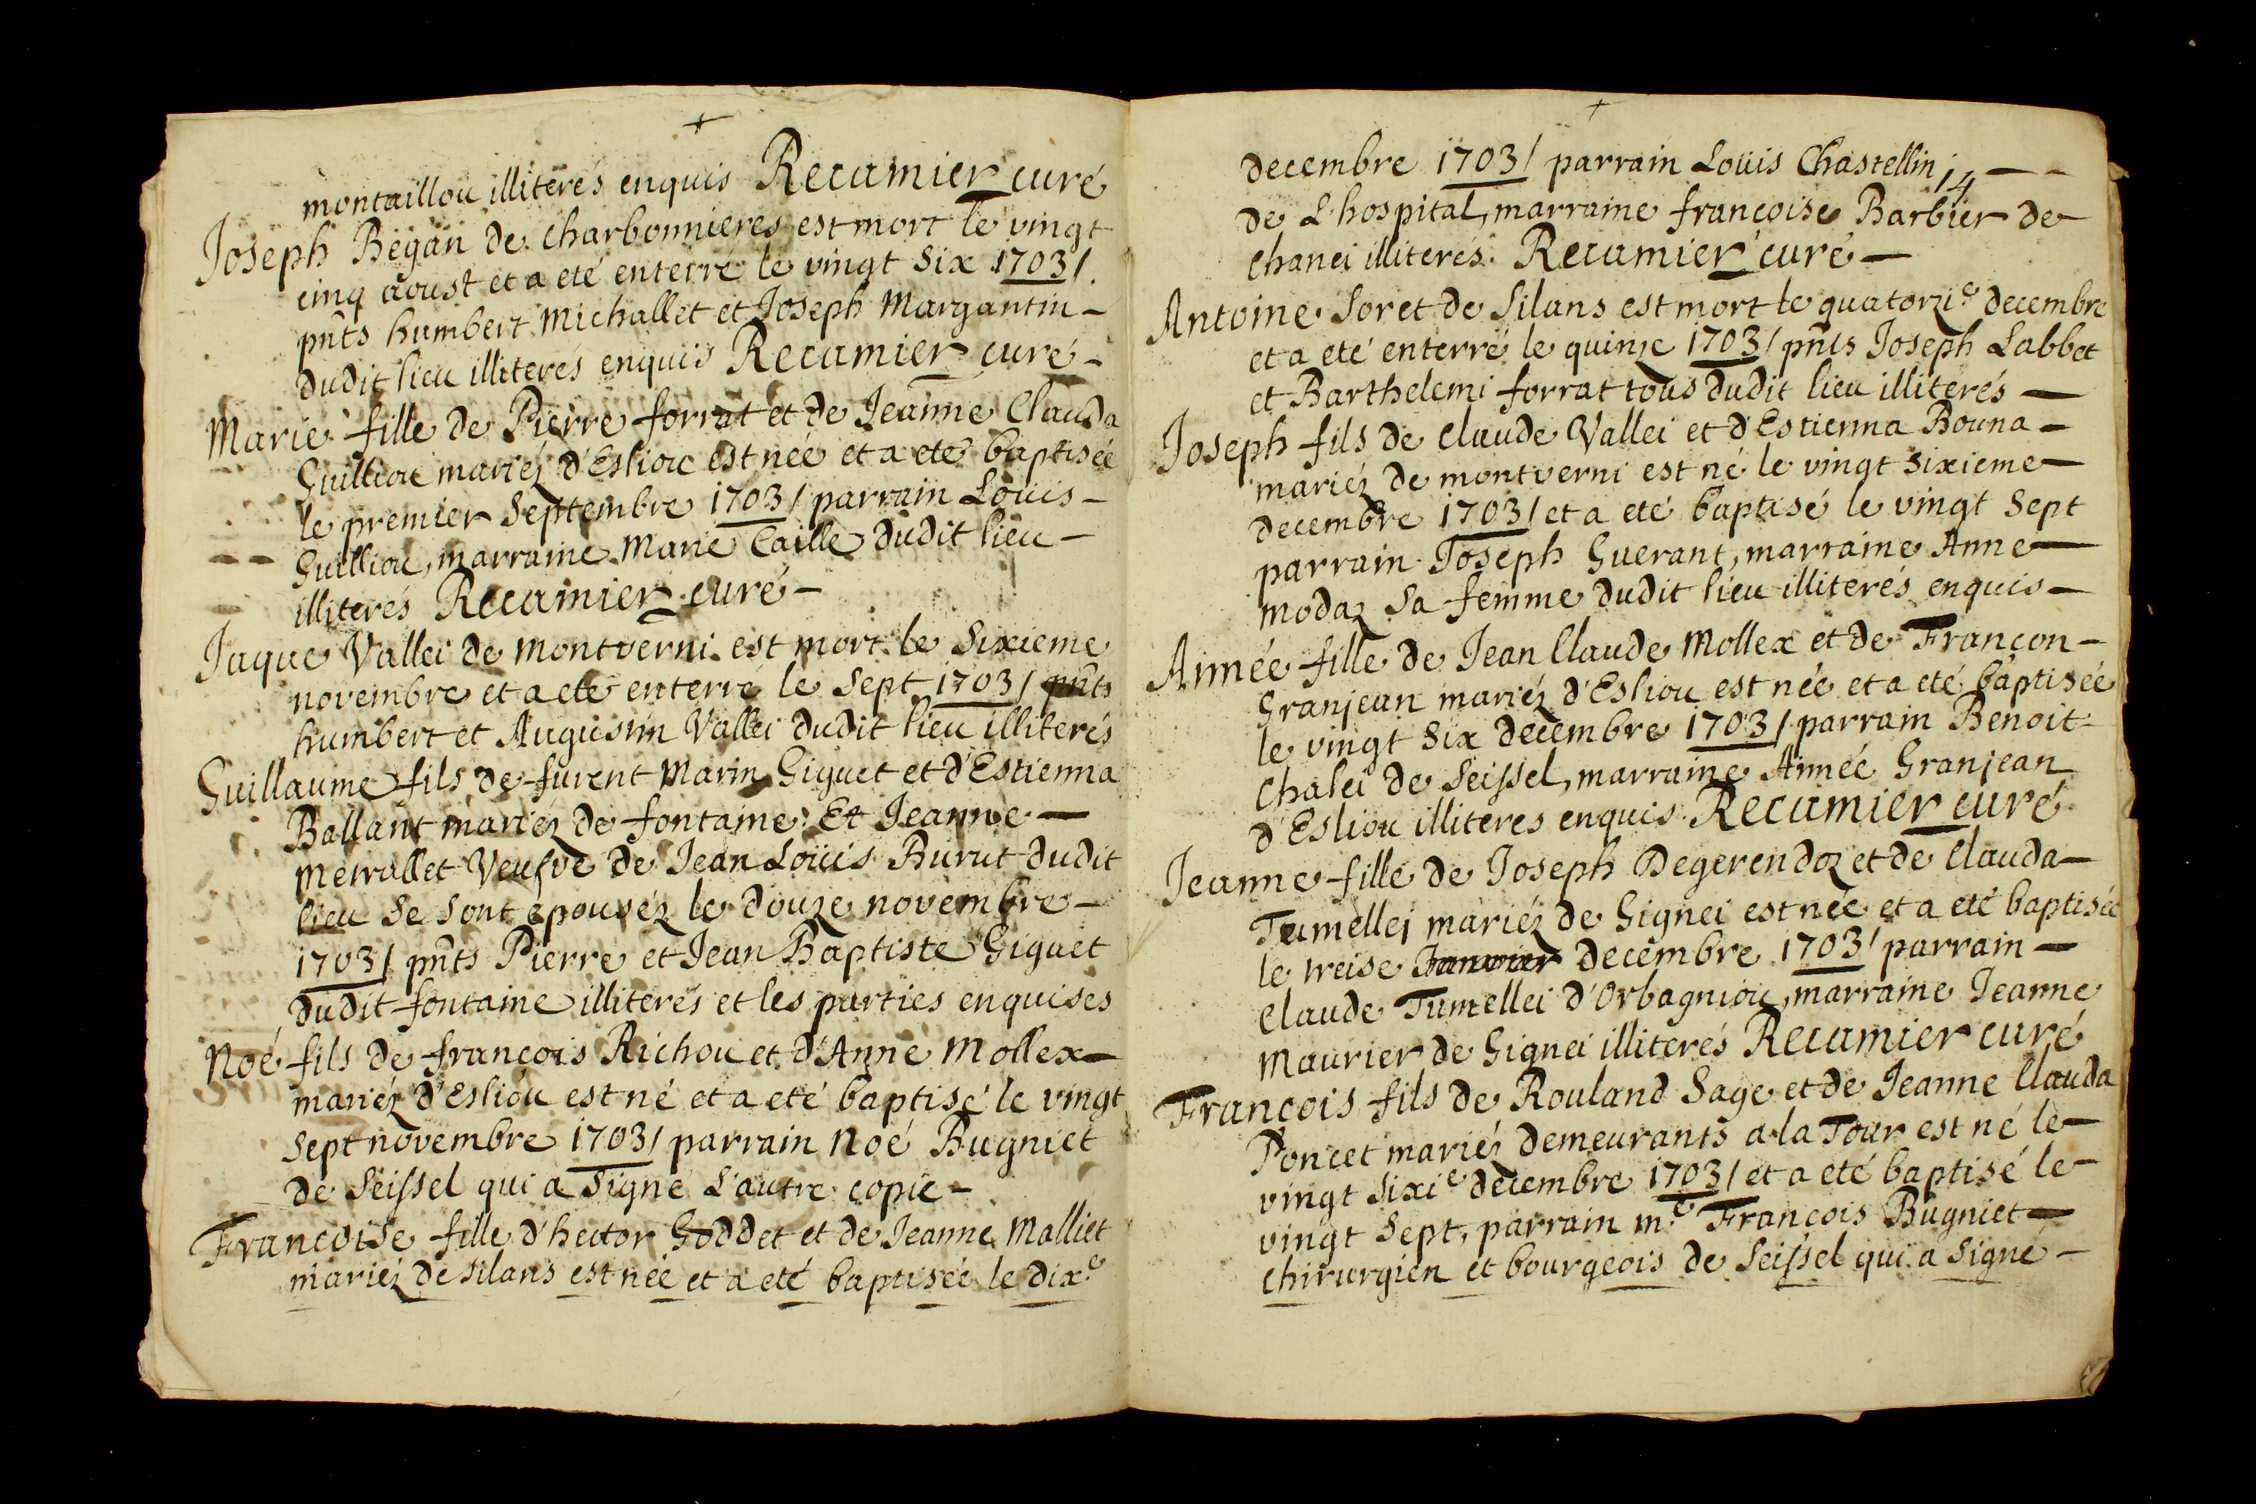 montaillou illiterés enquis Recamier curé
Joseph Began de charbonnieres est mort le vingt
cinq aoust et a eté enterré le vingt six 1703/.
pñts humbert Michallet et Joseph Margantin -
dudit lieu illiterés enquis Recamier curé -
Marie fille de Pierre forrat et de Jeanne Clauda
Guilliou mariéz d'Esliou est née et a eté baptisée
le premier Septembre 1703/ parrain Louis -
Guilliou, marraine Marie Caille dudit lieu -
illiterés Recamier curé -
Jaque Vallei de montverni est mort le Sixieme
novembre et a eté enterré le Sept 1703/ pñts
humbert et Augustin Vallei dudit lieu illiterés
Guillaume fils de furent Marin Giguet et d'Estienna
Ballant mariéz de fontaine. Et Jeanne —
Metrallet Veufve de Jean Loüis Burut dudit
lieu Se Sont epouséz le douze novembre -
1703/ pñts Pierre et Jean Baptiste Giguet
dudit fontaine illiterés et les parties enquises
Noé fils de francois Richou et d'Anne Mollex —
mariéz d'Esliou est né et a eté baptisé le vingt
Sept novembre 1703/ parrain Noé Bugniet
de Seissel qui a Signé L'autre copie -
Francoise fille d'hector Goddet et de Jeanne Malliet
mariéz de Silans est née et a eté baptisée le dix.e
decembre 1703/ parrain Loüis Chastellin 14 - -
de L'hospital, marraine françoise Barbier de
Chanei illiterés. Recamier curé —
Antoine Soret de Silans est mort le quatorzi.e decembre
et a eté enterré le quinze 1703/ pñts Joseph Labbet
et Barthelemi forrat tous dudit lieu illiterés —
Joseph fils de claude Vallei et d'Estienna Bouna -
mariéz de montverni est né le vingt Sixieme —
decembre 1703/ et a eté baptisé le vingt Sept
parrain Joseph Guerant, marraine Anne —
modaz Sa femme dudit lieu illiterés enquis —
Aimée fille de Jean Claude Mollex et de Françon -
Granjean mariéz d'Esliou est née et a eté baptisée
le vingt Six decembre 1703/ parrain Benoit
Chalei de Seissel, marraine Aimée Granjean
d'Esliou illiteres enquis Recamier curé
Jeanne fille de Joseph Degerendoz et de Clauda —
Tumellei mariéz de Gignei est née et a eté baptisée
le treise Janvier decembre 1703/ parrain —
Claude Tumellei d'Orbagniou, marraine Jeanne
Maurier de Gignei illiterés Recamier curé
Francois fils de Rouland Sage et de Jeanne Clauda
Poncet mariéz demeurants a la Tour est né le —
vingt Sixi.e decembre 1703/ et a eté baptisé le -
vingt Sept, parrain m.e François Bugniet —
chirurgien et bourgeois de Seissel qui a Signé -